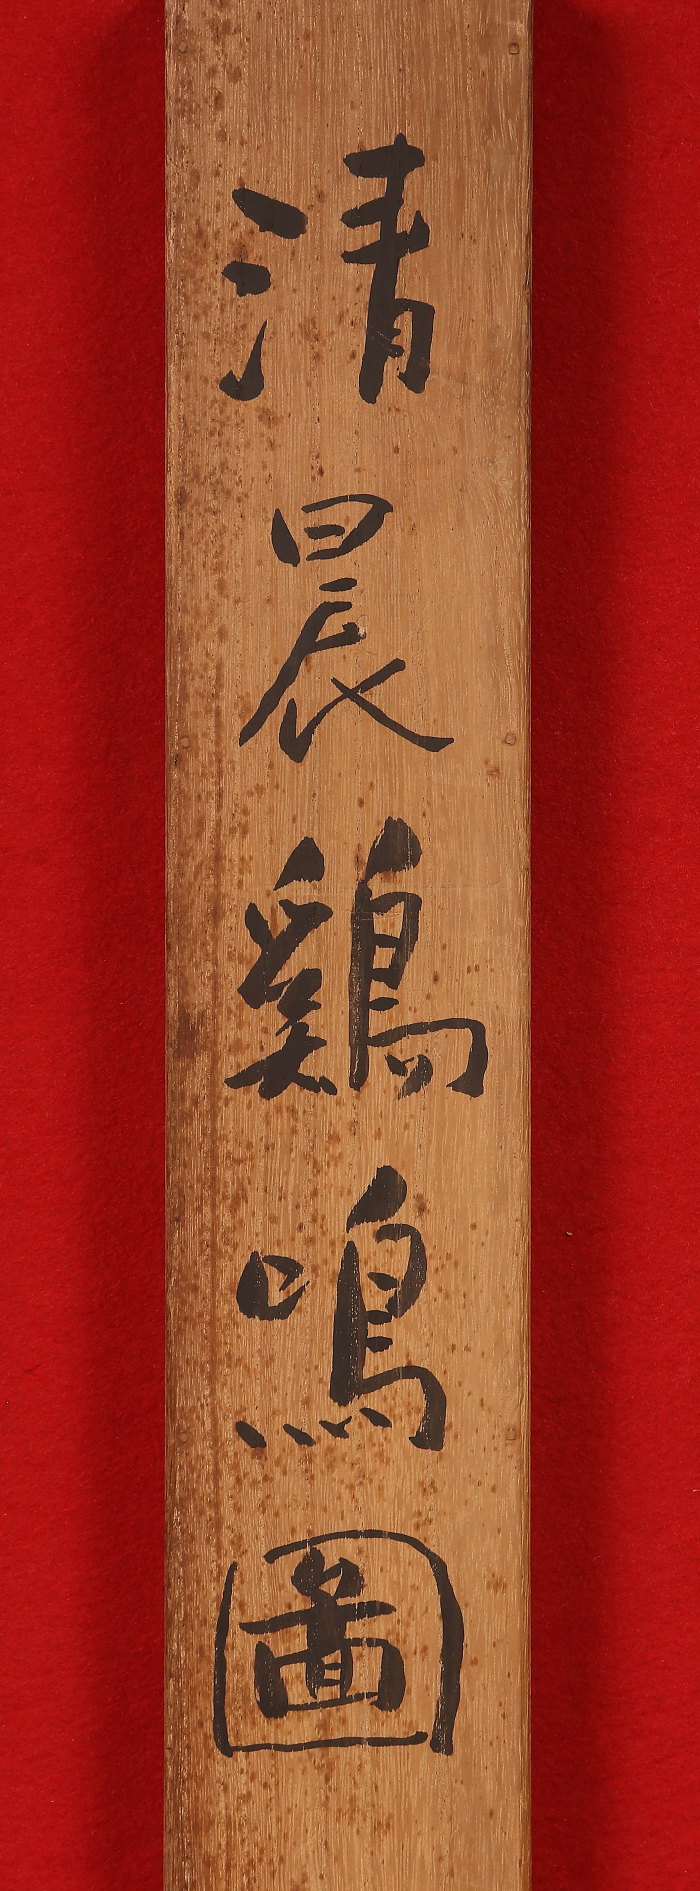 清晨鷄鳴圖